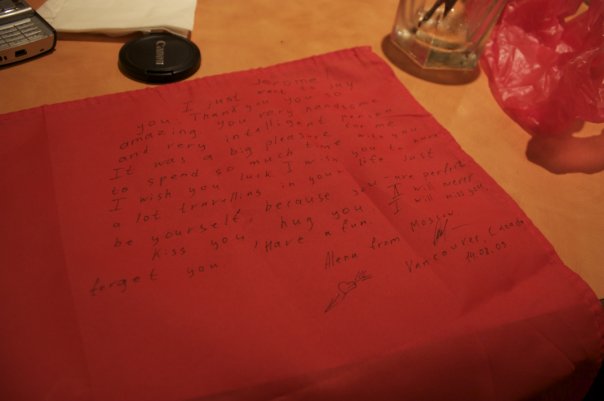 CANON
Jerome
I just want to say
you. Thank you you so
amazing, you very handsome
and very intelligent person
It was a big pleasure for me
to spend so much time with you
I wish you luck. I wish you to have
a lot travelling in your life Just
be yourself because you are perfect
Kiss you, hug you. I will never
forget you. Have a fun. I will miss you
Alena from Moscow
Vancouver, Canada
14.08.09